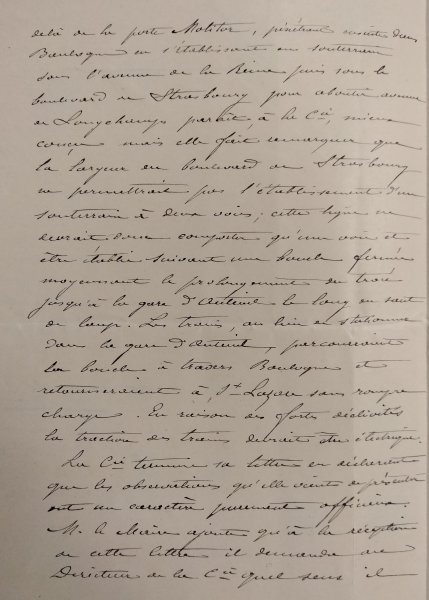 delà de la porte Molitor, pénétrant ensuite dans
Boulogne en s'établissant en souterrain
sous l'avenue de la Reine puis sous le
boulevard de Strasbourg pour aboutir avenue
de Longchamps parait à la Cie, mieux
conçu mais elle fait remarquer que
la largeur du boulevard de Strasbourg
ne permettrait pas l'établissement d'un
souterrain à deux voies ; cette ligne ne
devrait donc comporter qu'une voie et
être établie suivant une boucle fermée
moyennant le prolongement du tracé
jusqu'à la gare d'Auteuil le long du saut
de loup. Les trains, au lieu de stationner
dans la gare d'Auteuil, parcourraient
la boucle à travers Boulogne et
retourneraient à St Lazare sans rompre
charge. En raison des fortes déclivités
la traction des trains devrait être électrique.
La Cie termine sa lettre en déclarant
que les observations qu'elle vient de présenter
ont un caractère purement officieux.
M. le Maire ajoute qu'à la réception
de cette lettre il demanda au
Directeur de la Cie quel sens il